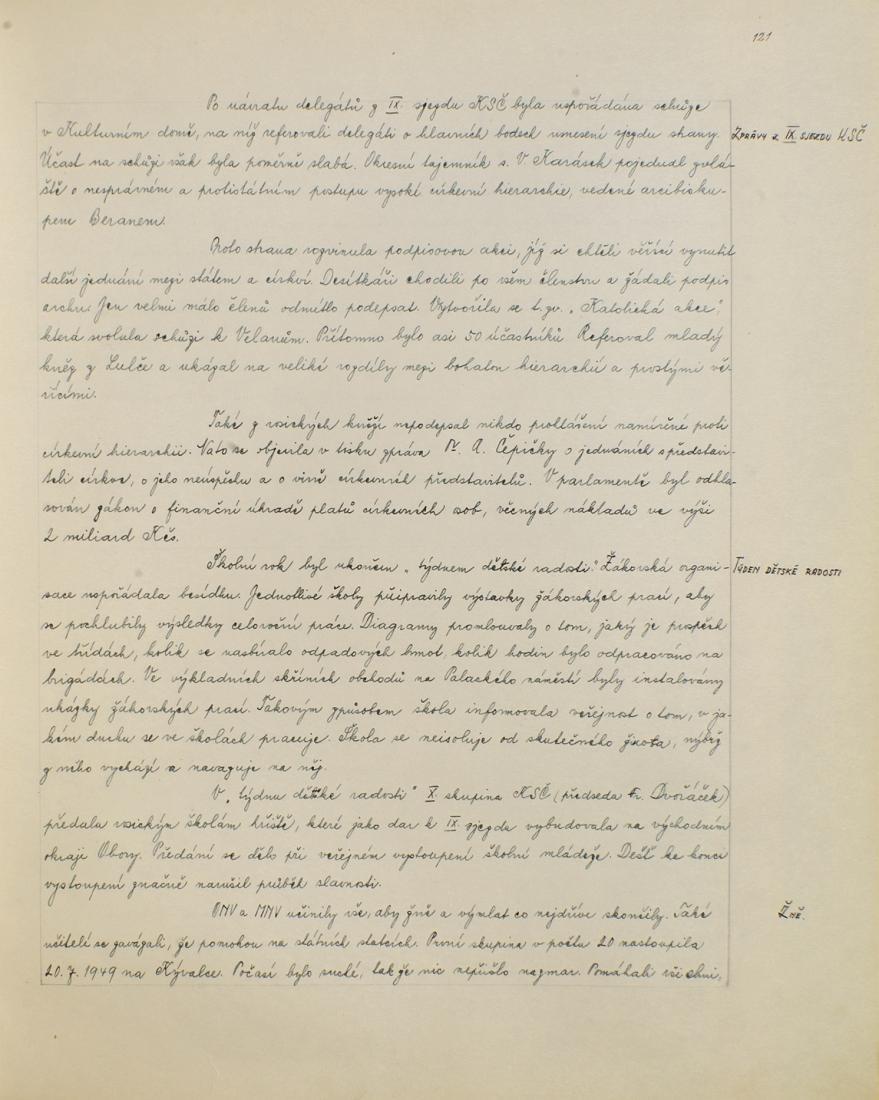 121
Po návratu delegátů z IX. sjezdu KSČ byla uspořádána schůze
v Kulturním domě, na níž referovali delegáti o hlavních bodech usnesení sjezdu strany.
Zprávy z IX sjezdu KSČ
Účast na schůzi však byla poměrně slabá. Okresní tajemník s. V. Karásek pojednal zvlá-
ště o nesprávném a protistátním postupu vysoké církevní hierarchie, vedené arcibisku-
pem Beranem.
Proto strana rozvinula podpisovou akci, jíž si chtěli věřící vynutit
další jednání mezi státem a církví. Desítkáři chodili po všem členstvu a žádali podpis
archu. Jen velmi málo členů odmítlo podepsat. Vytvořila se t.zv. „Katolická akce",
která svolala schůzi k Velanům. Přítomno bylo asi 50 účastníků. Referoval mladý
kněz z Lulče a ukázal na veliké rozdíly mezi bohatou hierarchií a prostými vě-
řícími.
Také z rosických kněží nepodepsal nikdo prohlášení namířené proti
církevní hierarchii. Nato se objevila v tisku zpráva Dr. A. Čepičky o jednáních s představi-
teli církve, o jeho neúspěchu a o vině církevních představitelů. V parlamentě byl odhla-
sován zákon o finanční úhradě platů církevních osob, věcných nákladů ve výši
2 miliard Kčs.
Školní rok byl ukončen „týdnem dětské radosti." Žákovská organi-
Týden dětské radosti
sace uspořádala besídku. Jednotlivé školy připravily výstavky žákovských prací, aby
se pochlubily výsledky celoroční práce. Diagramy promlouvaly o tom, jaký je prospěch
ve třídách, kolik se nasbíralo odpadových hmot, kolik hodin bylo odpracováno na
brigádách. Ve výkladních skříních obchodů na Palackého náměstí byly instalovány
ukázky žákovských prací. Takovým způsobem škola informovala veřejnost o tom, v ja-
kém duchu se ve školách pracuje. Škola se neisoluje od skutečného života, nýbrž
z něho vychází a navazuje na něj.
V „týdnu dětské radosti" X. skupina KSČ (předseda Fr. Dvořáček)
předala rosickým školám hřiště, které jako dar k IX. sjezdu vybudovala na východním
okraji Obory. Předání se dělo při veřejném vystoupení školní mládeže. Déšť ke konci
vystoupení značně narušil průběh slavnosti.
ONV a MNV učinily vše, aby žně a výmlat co nejdříve skončily. Také
Žně.
učitelé se zavázali, že pomohou na státních statcích. První skupina v počtu 20 nastoupila
20. 7. 1949 na Kývalce. Počasí bylo suché, takže nic nepřišlo nazmar. Pomáhali všichni,